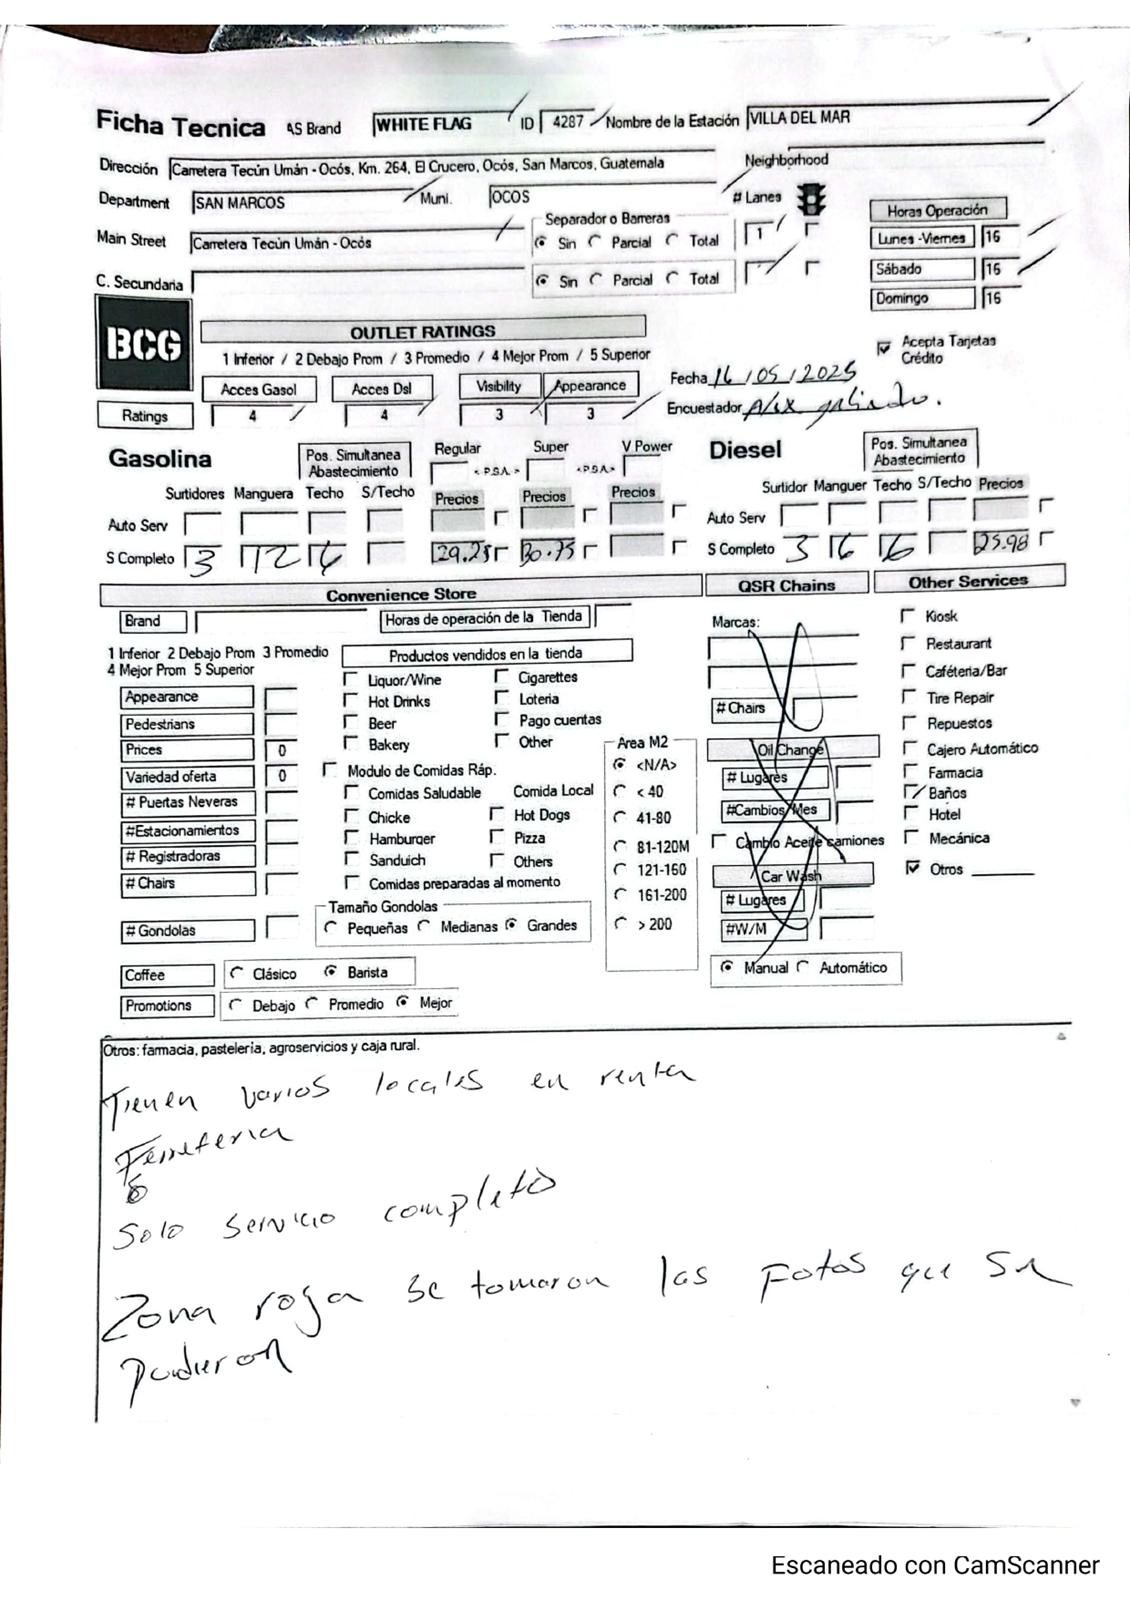 Ficha Tecnica AS Brand WHITE FLAG ID 4287 Nombre de la Estación VILLA DEL MAR
Dirección Carretera Tecún Umán - Ocós, Km. 264, El Crucero, Ocós, San Marcos, Guatemala Neighborhood
Department SAN MARCOS Muni. OCOS # Lanes
Main Street Carretera Tecún Umán - Ocós
Separador o Barreras
Sin Parcial Total 1
C. Secundaria
Sin Parcial Total
Horas Operación
Lunes -Viernes 16
Sábado 16
Domingo 16
BCG
OUTLET RATINGS
1 Inferior / 2 Debajo Prom / 3 Promedio / 4 Mejor Prom / 5 Superior
Acces Gasol Acces Dsl Visibility Appearance
Ratings 4 4 3 3
Acepta Tarjetas Crédito
Fecha 16/05/2025
Encuestador Alex galindo.
Gasolina
Pos. Simultanea Abastecimiento
Regular Super V Power
< P.S.A. > < P.S.A. >
Surtidores Manguera Techo S/Techo Precios Precios Precios
Auto Serv
S Completo 3 12 6 29.25 30.75
Diesel
Pos. Simultanea Abastecimiento
Surtidor Manguer Techo S/Techo Precios
Auto Serv
S Completo 3 6 6 25.98
Convenience Store
Brand
Horas de operación de la Tienda
1 Inferior 2 Debajo Prom 3 Promedio
4 Mejor Prom 5 Superior
Appearance
Pedestrians
Prices 0
Variedad oferta 0
# Puertas Neveras
#Estacionamientos
# Registradoras
# Chairs
# Gondolas
Productos vendidos en la tienda
Liquor/Wine Cigarettes
Hot Drinks Loteria
Beer Pago cuentas
Bakery Other
Modulo de Comidas Ráp.
Comidas Saludable Comida Local
Chicke Hot Dogs
Hamburger Pizza
Sanduich Others
Comidas preparadas al momento
Tamaño Gondolas
Pequeñas Medianas Grandes
Area M2
<N/A>
< 40
41-80
81-120M
121-160
161-200
> 200
Coffee Clásico Barista
Promotions Debajo Promedio Mejor
QSR Chains
Marcas:
# Chairs
Oil Change
# Lugares
#Cambios Mes
Cambio Aceite camiones
Car Wash
# Lugares
#W/M
Manual Automático
Other Services
Kiosk
Restaurant
Caféteria/Bar
Tire Repair
Repuestos
Cajero Automático
Farmacia
Baños
Hotel
Mecánica
Otros
Otros: farmacia, pastelería, agroservicios y caja rural.
Tienen varios locales en renta
Ferreteria
Solo servicio completo
Zona roja se tomaron las fotos que se
pudieron
Escaneado con CamScanner